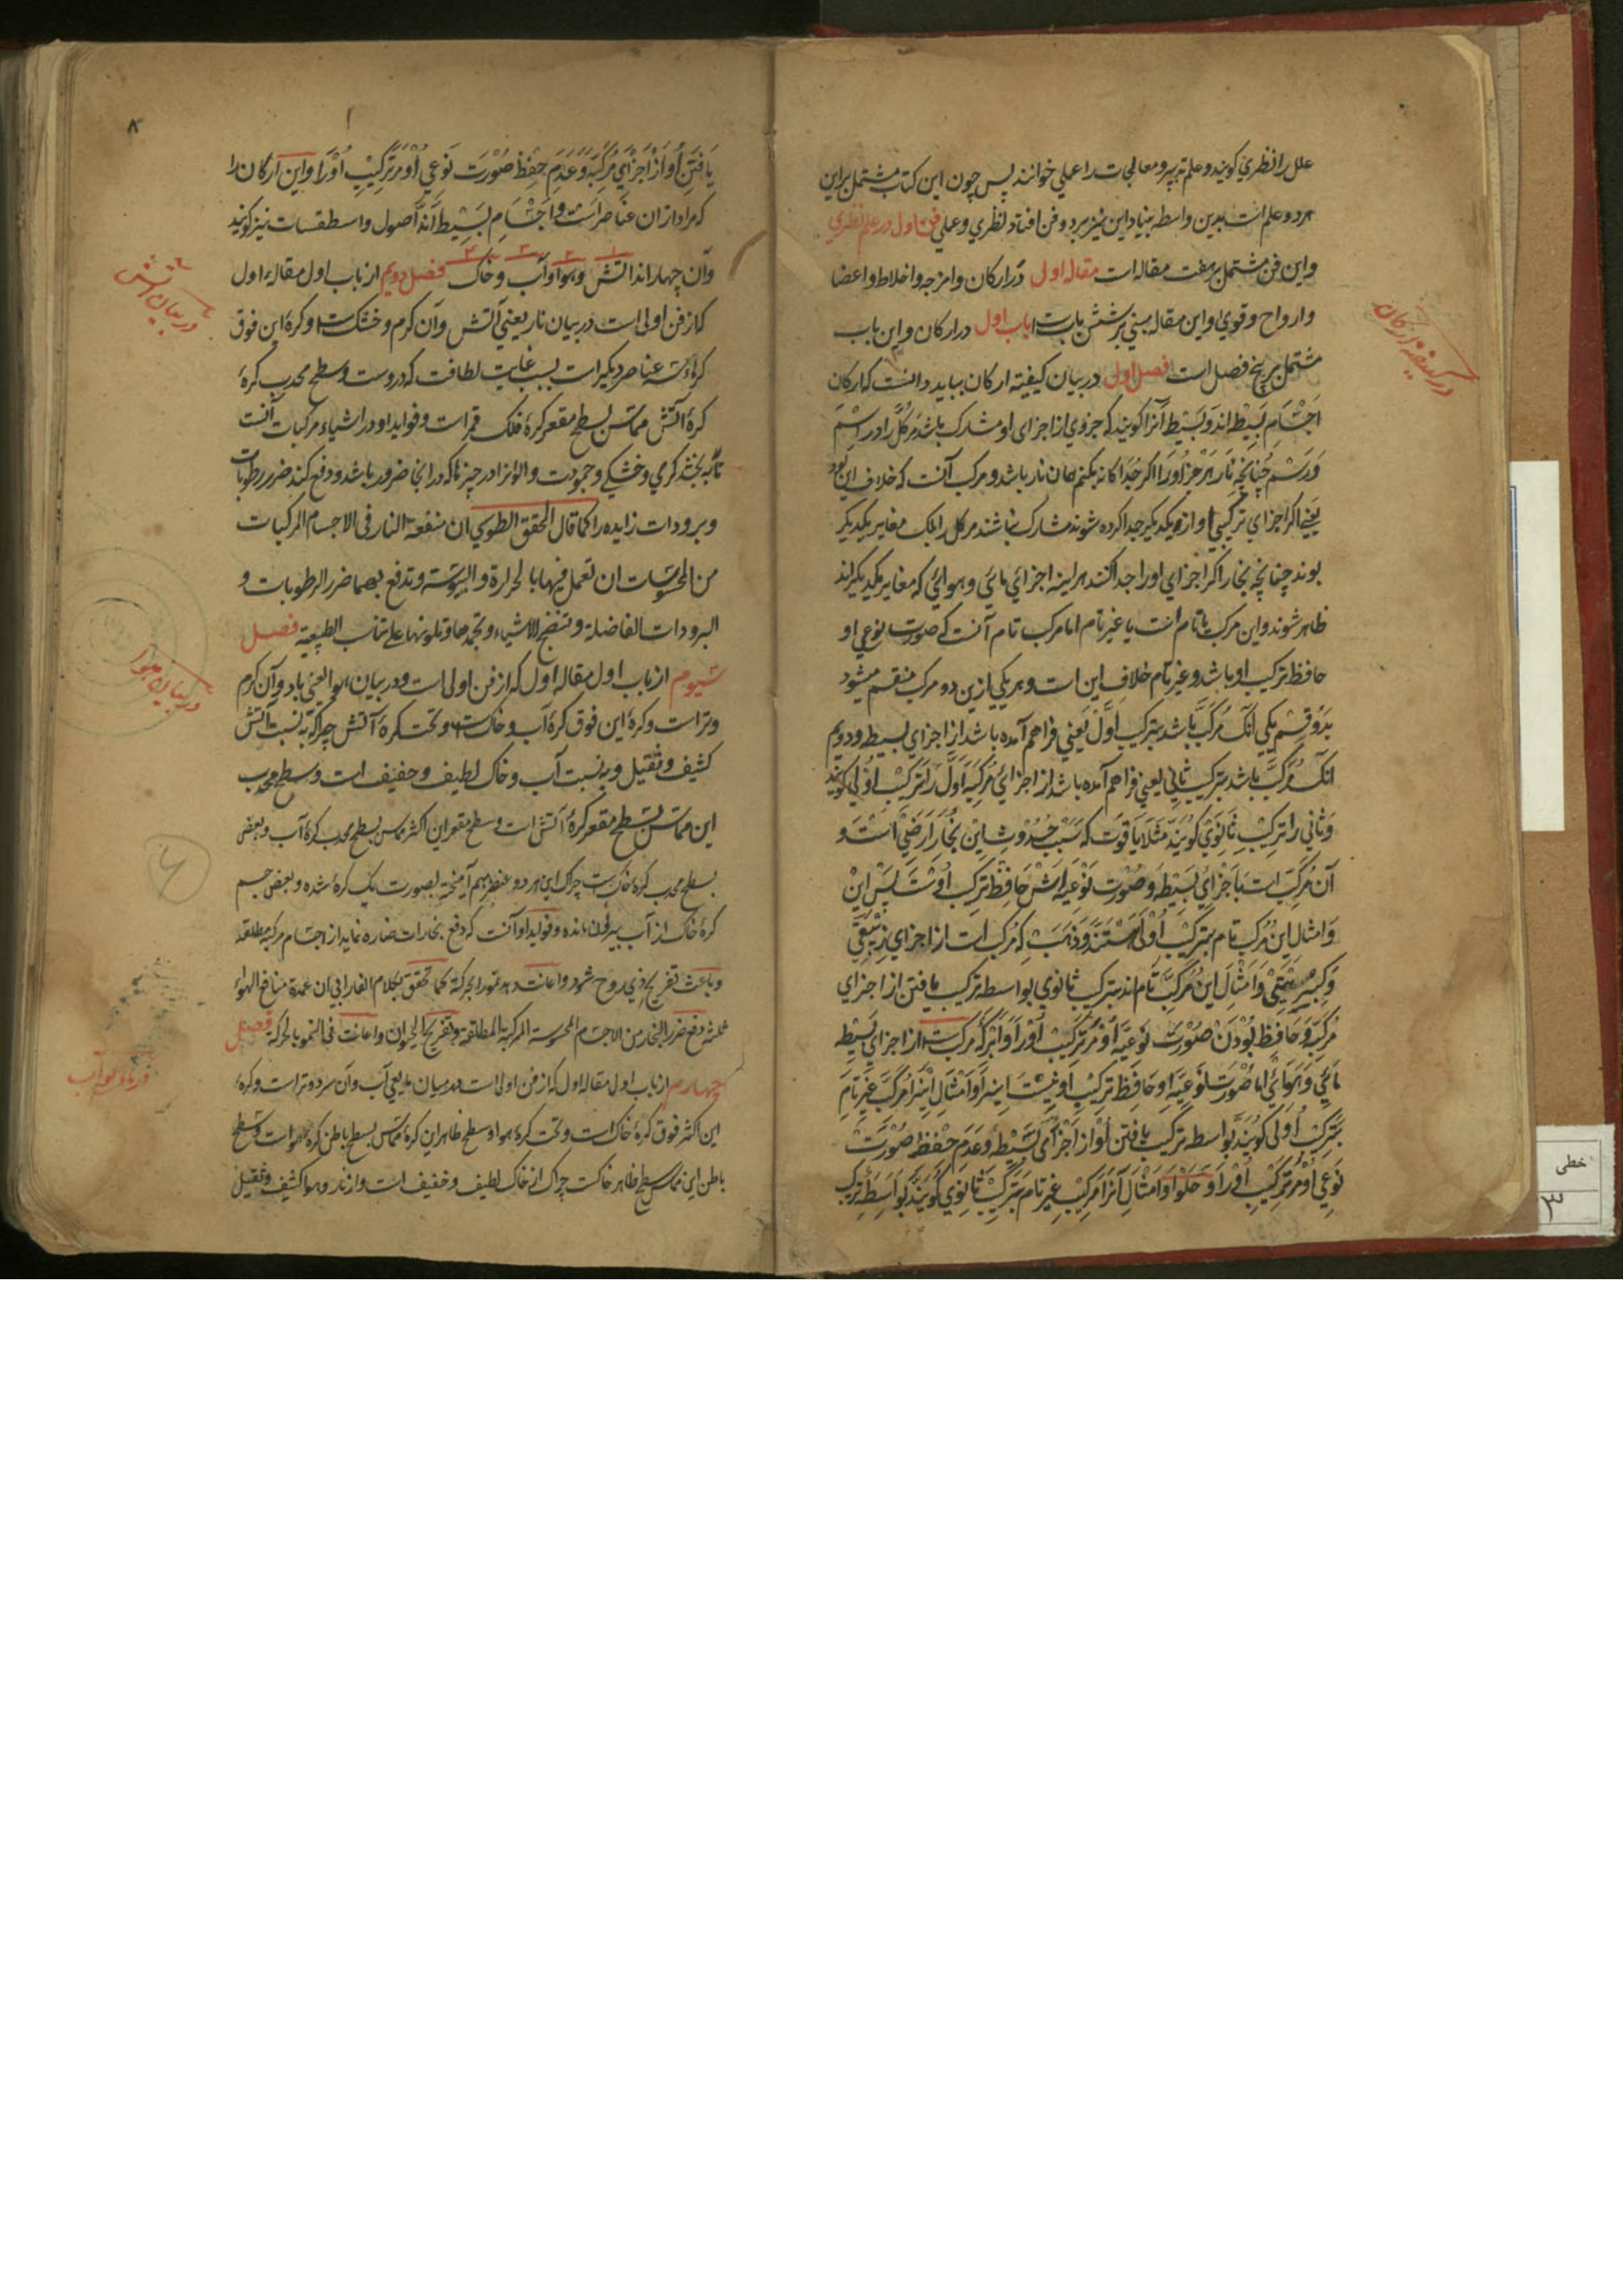 علل را نظري کويند و علم تدبير و معالجات را عملي خوانند پس چون اين کتاب مشتمل براين
هر دو علم است بدين واسطه بنياد اين نيز بر دو فن افتاد نظري و عملي فن اول در علم نظري
و اين فن مشتمل بر هفت مقاله است مقاله اولي در ارکان و امزجه و اخلاط و اعضا
و ارواح و قوي و اين مقاله مبني بر شش بابست باب اول در ارکان و اين باب
مشتمل بر پنج فصل است فصل اول در بيان کيفيته ارکان ببايد دانست که ارکان
اجسام بسيطه اند و بسيط آنرا کويند که جزوي از اجزاي او مشارک باشد مر کل را در اسم
و رسم چنانچه نار هر جز او را اکر جدا کانه بکنم همان نار باشد و مرکب آنست که خلاف اين بود
يعني اکر اجزاي ترکيبي او از يکديکر جدا کرده شوند مشارک نباشند مر کل را بلک مغاير يکديکر
بوند چنانچه بخار اکر اجزاي او را جدا کنند هر اينه اجزائي مائي و هوائي که مغاير يکديکراند
ظاهر شوند و اين مرکب يا تام است يا غير تام اما مرکب تام آنست که صورت نوعي او
حافظ ترکيب او باشد و غير تام خلاف اين است و هر يکي ازين دو مرکب منقسم ميشود
بدو قسم يکي آنک مرکب باشد بترکيب اول يعني فراهم آمده باشد از اجزاي بسيطه و دويم
انک مرکب باشد بترکيب ثاني يعني فراهم آمده باشد از اجزائي مرکبه اول را ترکيب اولي کويند
و ثاني را ترکيب ثانوي کويند مثلا ياقوت که سبب حدوث اين بخار ارضي است و
آن مرکب است با جزاي بسيطه و صورت نوعيه اش حافظ ترکيب اوست پس اين
و امثال اين مرکب تام بترکيب اولي هستند و ذهب که مرکب است از اجزاي زيبقي
و کبريتي و امثال اين مرکب تام اند بترکيب ثانوي بواسطه ترکيب يافتن از اجزاي
مرکبه و حافظ بودن صورت نوعيه او مر ترکيب او را و ابر که مرکبست از اجزاي بسيطه
مائي و هوائي اما صورت نوعيه او حافظ ترکيب او نيست اينرا و امثال اينرا مرکب غير تام
بترکيب اولي کويند بواسطه ترکيب يافتن او از اجزاي بسيطه و عدم حفظ صورت
نوعي او مر ترکيب او را و حلوا و امثال آنرا مرکب غير تام بترکيب ثانوي کويند بواسطه ترکيب
در کيفيته ارکان
خطی
۳
۸
يافتن او از اجزاي مرکبه و عدم حفظ صورت نوعي او مر ترکيب او را و اين ارکان را
که مراد از ان عناصر است و اجسام بسيطه اند اصول و اسطقسات نيز کويند
و آن چهار اند اتش و هوا و آب و خاک فصل دويم از باب اول مقاله اول
که از فن اولي است در بيان نار يعني آتش و آن کرم و خشکست و کرهٔ اين فوق
کرهاء سه عناصر ديکر است بسبب غايت لطافت که دروست و سطح محدب کرهٔ
کرهٔ آتش مماس بسطح مقعر کرهٔ فلک قمر است و فوايد او در اشياء مرکبات آنست
تا به بخشد کرمي و خشکي و جمودت و الوانرا در چيزها که در انجا ضرور باشد و دفع کند ضرر رطوبات
و برودات زايده را کما قال المحقق الطوسي ان منفعة النار في الاجسام المرکبات
من المحسوسات ان تعمل فيها با لحرارة و اليبوسة و تدفع بهما ضرر الرطوبات و
البرودات الفاضلة و تنضج الاشياء و تجمدها و تلونها علي تناسب الطبيعة فصل
سيوم از باب اول مقاله اول که از فن اولي است و در بيان هوا يعني باد و آن کرم
و تر است و کرهٔ اين فوق کرهٔ آب و خاکست و تحت کرهٔ آتش چرا که به نسبت آتش
کثيف و ثقيل و به نسبت آب و خاک لطيف و خفيف است و سطح محدب
اين مماس بسطح مقعر کرهٔ آتش است و سطح مقعر اين اکثر مماس بسطح محدب کرهٔ آب و بعض
بسطح محدب کرهٔ خاکست چراک اين هر دو عنصر بهم آميخته بصورت يک کرهٔ شده و بعض جسم
کرهٔ خاک از آب بيرون مانده و فوايد او آنست که دفع بخارات ضاره نمايد از اجسام مرکبه مطلقه
و باعث تفريح ذي روح شود و اعانت دهد نمو را بحرکة کما تحقق بکلام الفارابي ان عمدة منافع الهواء
ثلثة دفع ضرر البخار من الاجسام المحسوسة المرکبة المطلقة و تفريح الحيوان و اعانت في النمو بالحرکة فصل
چهارم از باب اول مقاله اول که از فن اولي است در بيان ما يعني آب و آن سرد و تر است و کرهٔ
اين اکثر فوق کرهٔ خاک است و تحت کرهٔ هوا و سطح ظاهر اين کرهٔ مماس بسطح باطن کرهٔ هواست و سطح
باطن اين مماس سطح ظاهر خاکست چراک از خاک لطيف و خفيف است و از نار و هوا کثيف و ثقيل
در بيان اتش
در بيان هوا